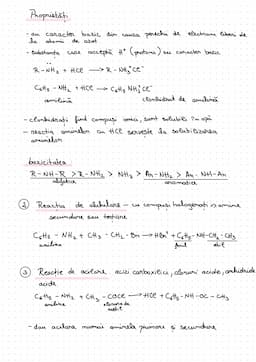 Proprietăți
- au caracter bazic din cauza perechii de electroni liberi de la atomii de azot
- substanța care acceptă H⁺ (protoni) au caracter bazic
R-NH₂ + HCl → R-NH₃⁺Cl⁻
C₆H₅-NH₂ + HCl → C₆H₅NH₃⁺Cl⁻
anilină clorhidrat de anilină
- clorhidrații fiind compuși ionici, sunt solubili în apă
- reacția aminelor cu HCl servește la solubilizarea aminelor
bazicitatea
R-NH-R > R-NH₂ > NH₃ > Ar-NH₂ > Ar-NH-Ar
alifatice aromatice
② Reacția de alchilare - cu compuși halogenați => amine secundare sau terțiare
C₆H₅-NH₂ + CH₃-CH₂-Br → HBr + C₆H₅-NH-CH₂-CH₃
anilina fenil etil
③ Reacție de acilare acizi carboxilici, cloruri acide, anhidride acide
C₆H₅-NH₂ + CH₃-COCl → HCl + C₆H₅-NH-OC-CH₃
anilina clorura de acetil
- dau acilare numai aminele primare și secundare